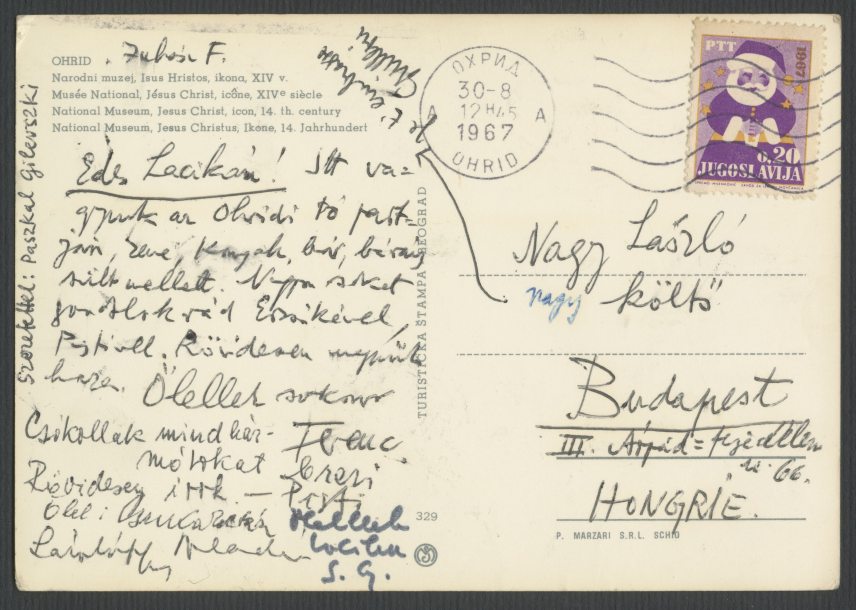 OHRID
Juhász F.
Narodni muzej, Isus Hristos, ikona, XIV v.
Musée National, Jésus Christ, icône, XIVe siècle
National Museum, Jesus Christ, icon, 14. th. century
National Museum, Jesus Christus, Ikone, 14. Jahrhundert
Édes Lacikám! Itt va=
gyunk az Ohridi tó part-
ján, zene, konyak, bor, bárány
sült mellett. Nagyon sokat
gondolok rád Erzsikével,
Pistivel. Rövidesen megyünk
haza. Ölellek sokszor
Ferenc
Csókollak mind hár-
mótokat
Rövidesen írok. —
Ölel:
Ölellek
S. G.
Szeretettel: Paszkal Gilevszki
TURISTIČKA ŠTAMPA BEOGRAD
329
ОХРИД
30-8
12H45
A A
1967
OHRID
PTT
1967
0,20
JUGOSLAVIJA
Nagy László
nagy költő
Budapest
III. Árpád=fejedelem
u. 66.
HONGRIE.
P. MARZARI S.R.L. SCHIO